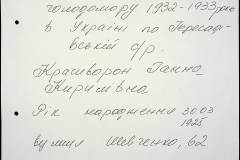 голодомору 1932-1933 рр
в Україні по Пересад-
вській с/р.
Крашворон Ганна
Кирилівна
Рік народження 30.03
1925
вулиця Шевченко, 62